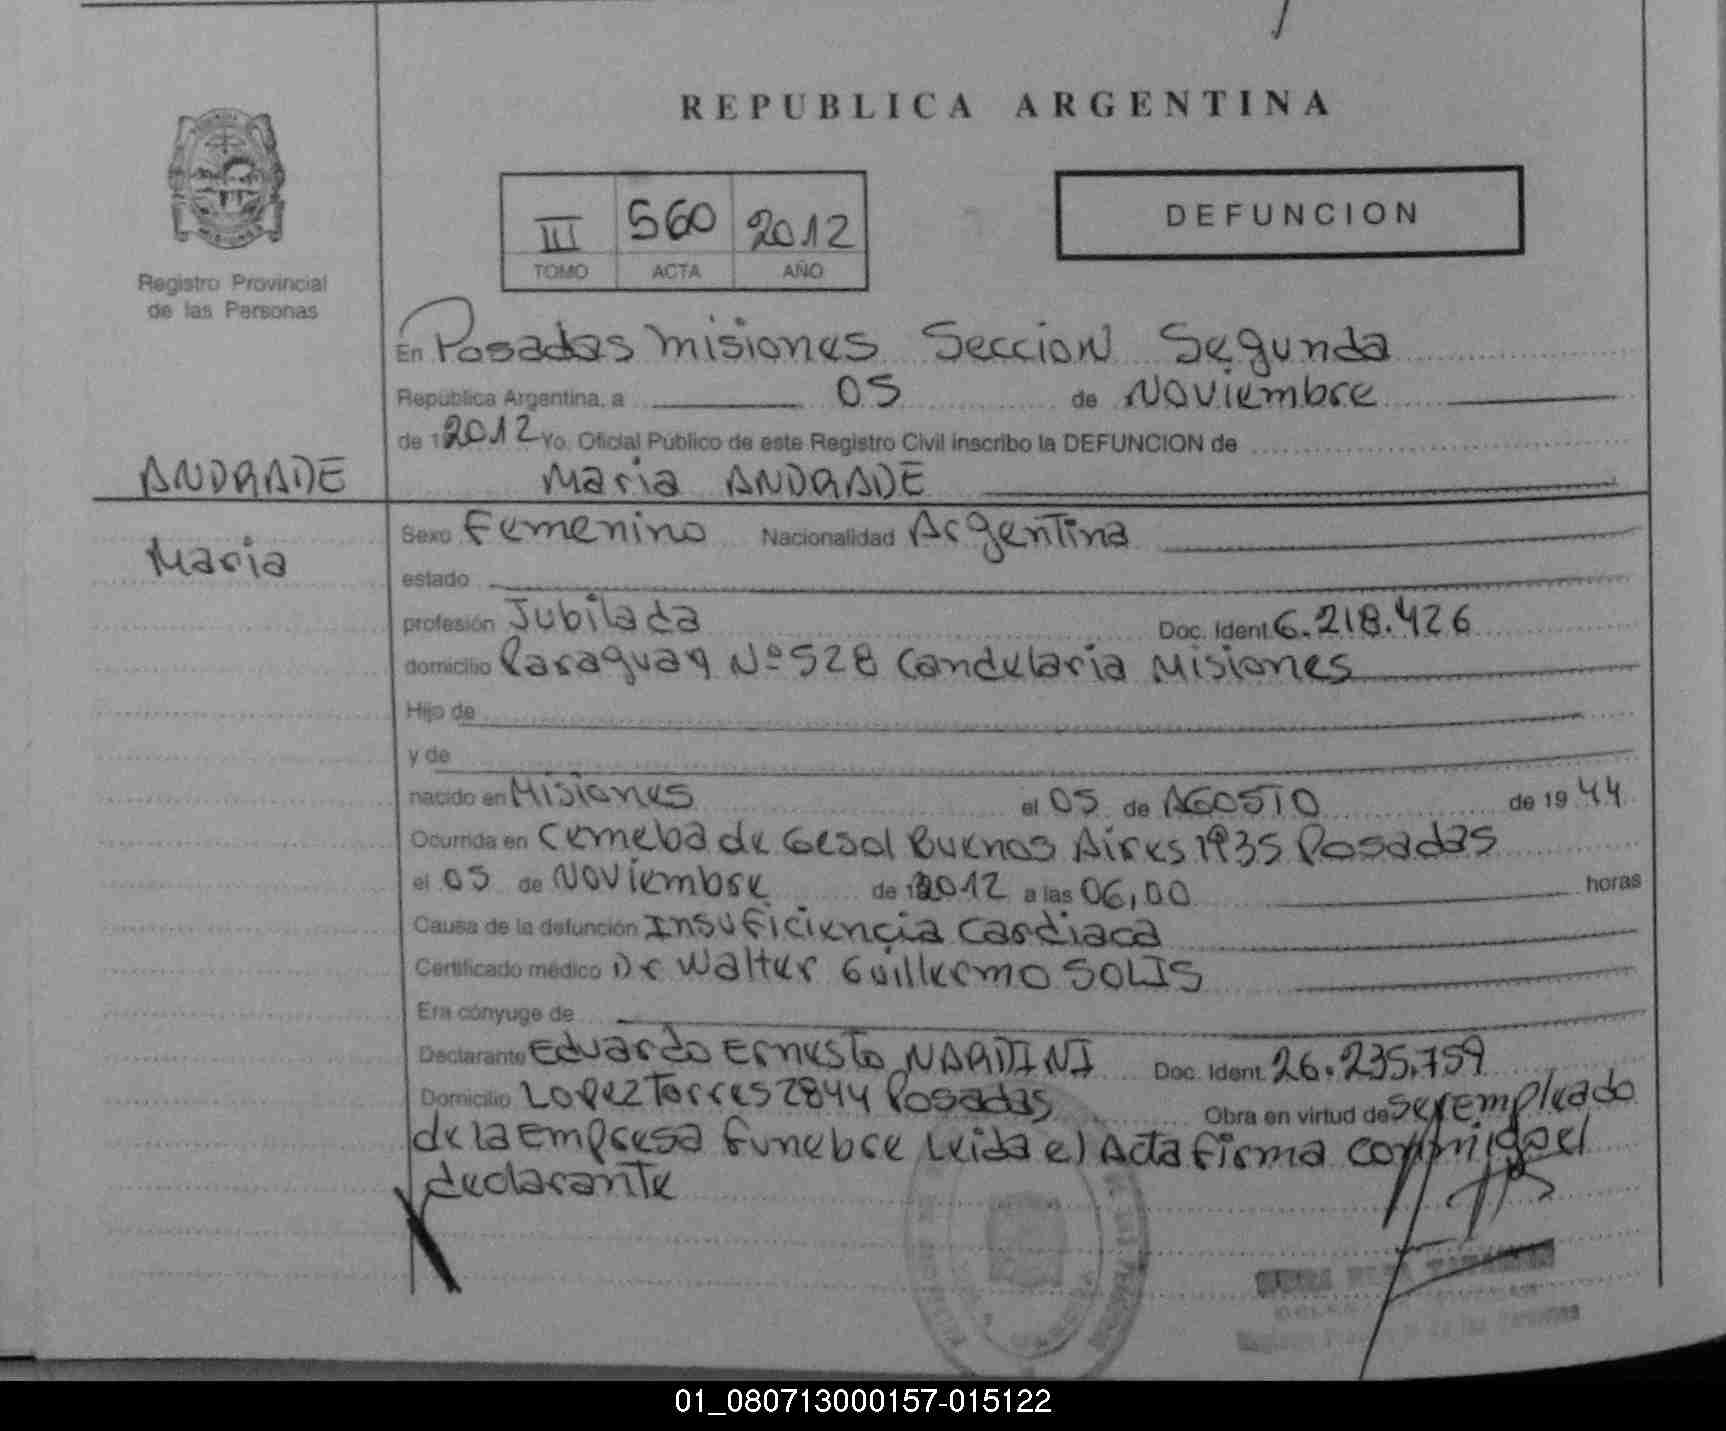 REPUBLICA ARGENTINA
III 560 2012
TOMO ACTA AÑO
DEFUNCION
Registro Provincial
de las Personas
En Posadas Misiones Seccion Segunda
República Argentina, a 05 de Noviembre
de 2012 Yo. Oficial Público de este Registro Civil inscribo la DEFUNCION de
ANDRADE
Maria ANDRADE
Maria
Sexo Femenino Nacionalidad Argentina
estado
profesión Jubilada Doc. Ident. 6.218.426
domicilio Paraguay Nº 528 Candelaria Misiones
Hijo de
y de
nacido en Misiones el 05 de AGOSTO de 19 44
Ocurrida en Cemeba de Gesal Buenos Aires 1935 Posadas
el 05 de Noviembre de 2012 a las 06,00 horas
Causa de la defunción Insuficiencia Cardiaca
Certificado médico Dr Walter Guillermo SOLIS
Era cónyuge de
Declarante Eduardo Ernesto NARDINI Doc. Ident. 26.235.759
Domicilio Lopez Torres 2844 Posadas Obra en virtud de ser empleado
de la Empresa Funebre Leida el Acta firma conmigo el
declarante
01_080713000157-015122